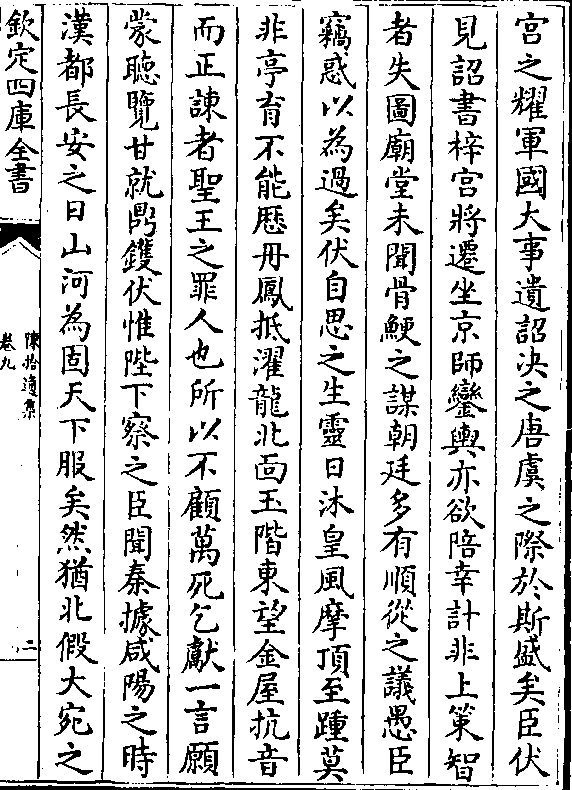 宮之耀軍國大事遺詔决之唐虞之際於斯盛矣臣伏
見詔書梓宮將遷坐京師鑾輿亦欲陪幸計非上策智
者失圖廟堂未聞骨鯁之謀朝廷多有順從之議愚臣
竊惑以為過矣伏自思之生靈日沐皇風摩頂至踵莫
非亭育不能歴丹鳳抵濯龍北面玉階東望金屋抗音
而正諫者聖王之罪人也所以不顧萬死乞獻一言願
蒙聽覽甘就鼎鑊伏惟陛下察之臣聞秦據咸陽之時
漢都長安之日山河為固天下服矣然猶北假大宛之
欽定四庫全書
陳拾遺集
卷九
二